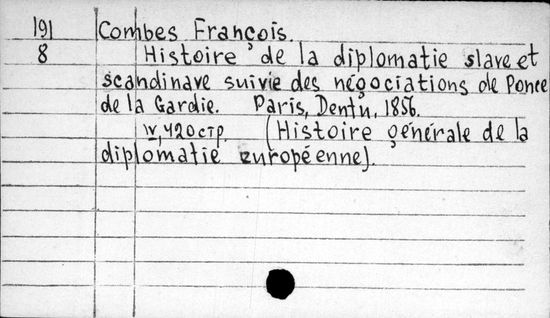 191 Combes François.
8 Histoire de la diplomatie slave et
scandinave suivie des négociations de Ponce
de la Gardie. Paris, Dentu, 1856.
IV, 420 стр. (Histoire générale de la
diplomatie européenne).